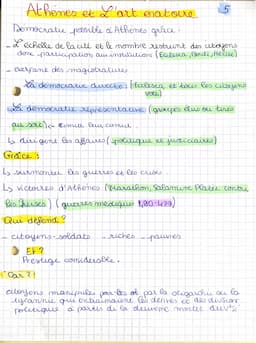 Athènes et L'art oratoire
5
Démocratie possible à Athènes grâce :
- L'échelle de la cité et le nombre restreint des citoyens
donc participation aux institutions (Ecclésia, Boulé, Héliée)
- des magistratures
La démocratie directe : (Ecclésia et tous les citoyens
vote)
La démocratie représentative (groupes élus ou tirés
au sort)
↳ dirigent les affaires (politiques et judiciaires)
Grâce :
↳ surmonter les guerres et les crises
↳ victoires d'Athènes (Marathon, Salamine Platée contre
les Perses) (guerres médiques 490-479)
Qui défend ?
- citoyens-soldats - riches - pauvres
Et ?
Prestige considérable.
Car ?!
citoyens manipulés par les et par la oligarchie ou la
tyrannie qui entrainaient les dérives et des division
politique à partir de la deuxième moitié du V